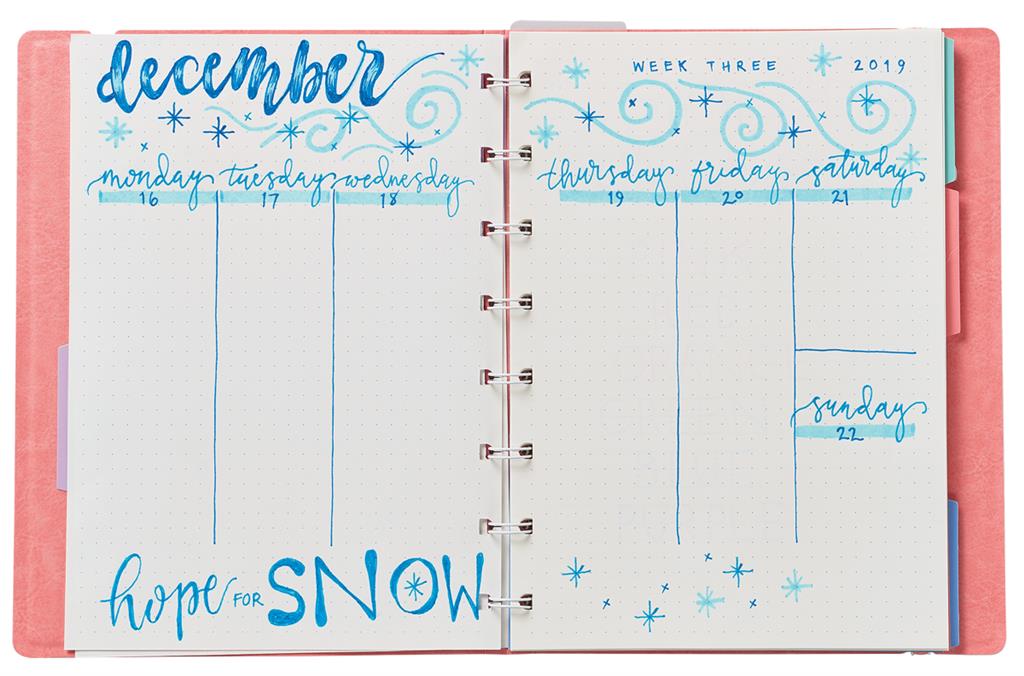 december
monday tuesday wednesday
16 17 18
hope FOR SNOW
WEEK THREE 2019
thursday friday saturday
19 20 21
sunday
22